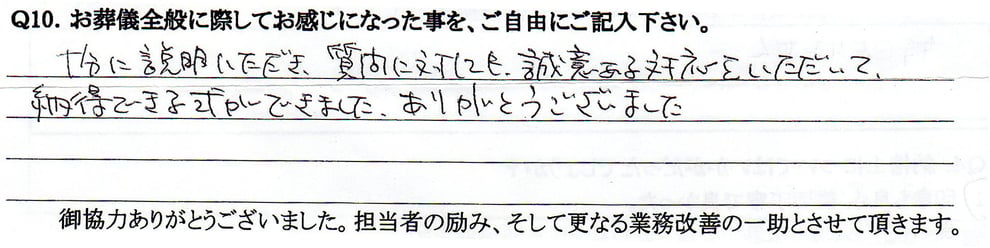 Q10. お葬儀全般に際してお感じになった事を、ご自由にご記入下さい。
十分に説明いただき、質問に対しても、誠意ある対応をいただいて、
納得できる式ができました。ありがとうございました
御協力ありがとうございました。担当者の励み、そして更なる業務改善の一助とさせて頂きます。